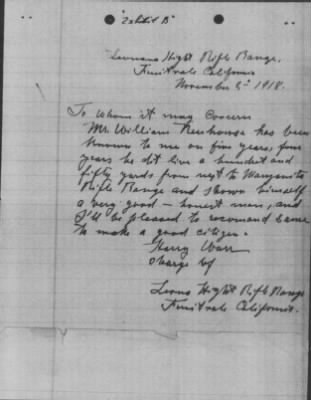 "Exhibit B"
Leonas Hight Rifle Range.
Fruitvale California
November 8th 1918.
To whom it may Concern
Mr. William Neuhouse has been
known to me on five years, four
years he dit live a hundert and
fifty yards from next to Manzanita
Rifle Range and shown himself
a very good - honest man, and
I'll be pleased to recomand same
to make a good citizen.
Harry Warr
Charge of
Leona Hight Rifle Range
Fruitvale California.